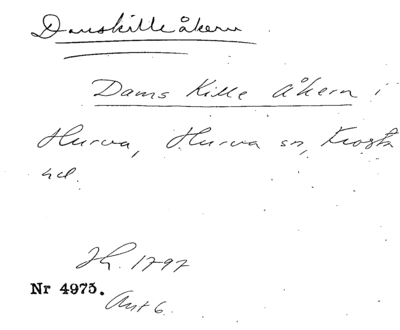 Damskilleåkern
Dams Kille åkern i
Hurva, Hurva sn, Frosta
hd.
Jh. 1797
Nr 4975.
Akt 6.